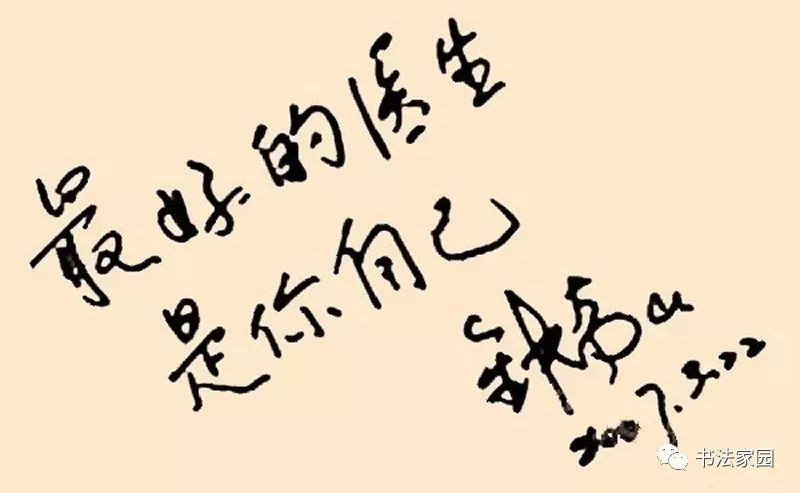 最好的医生
是你自己
钟南山
2007.3.22
书法家园